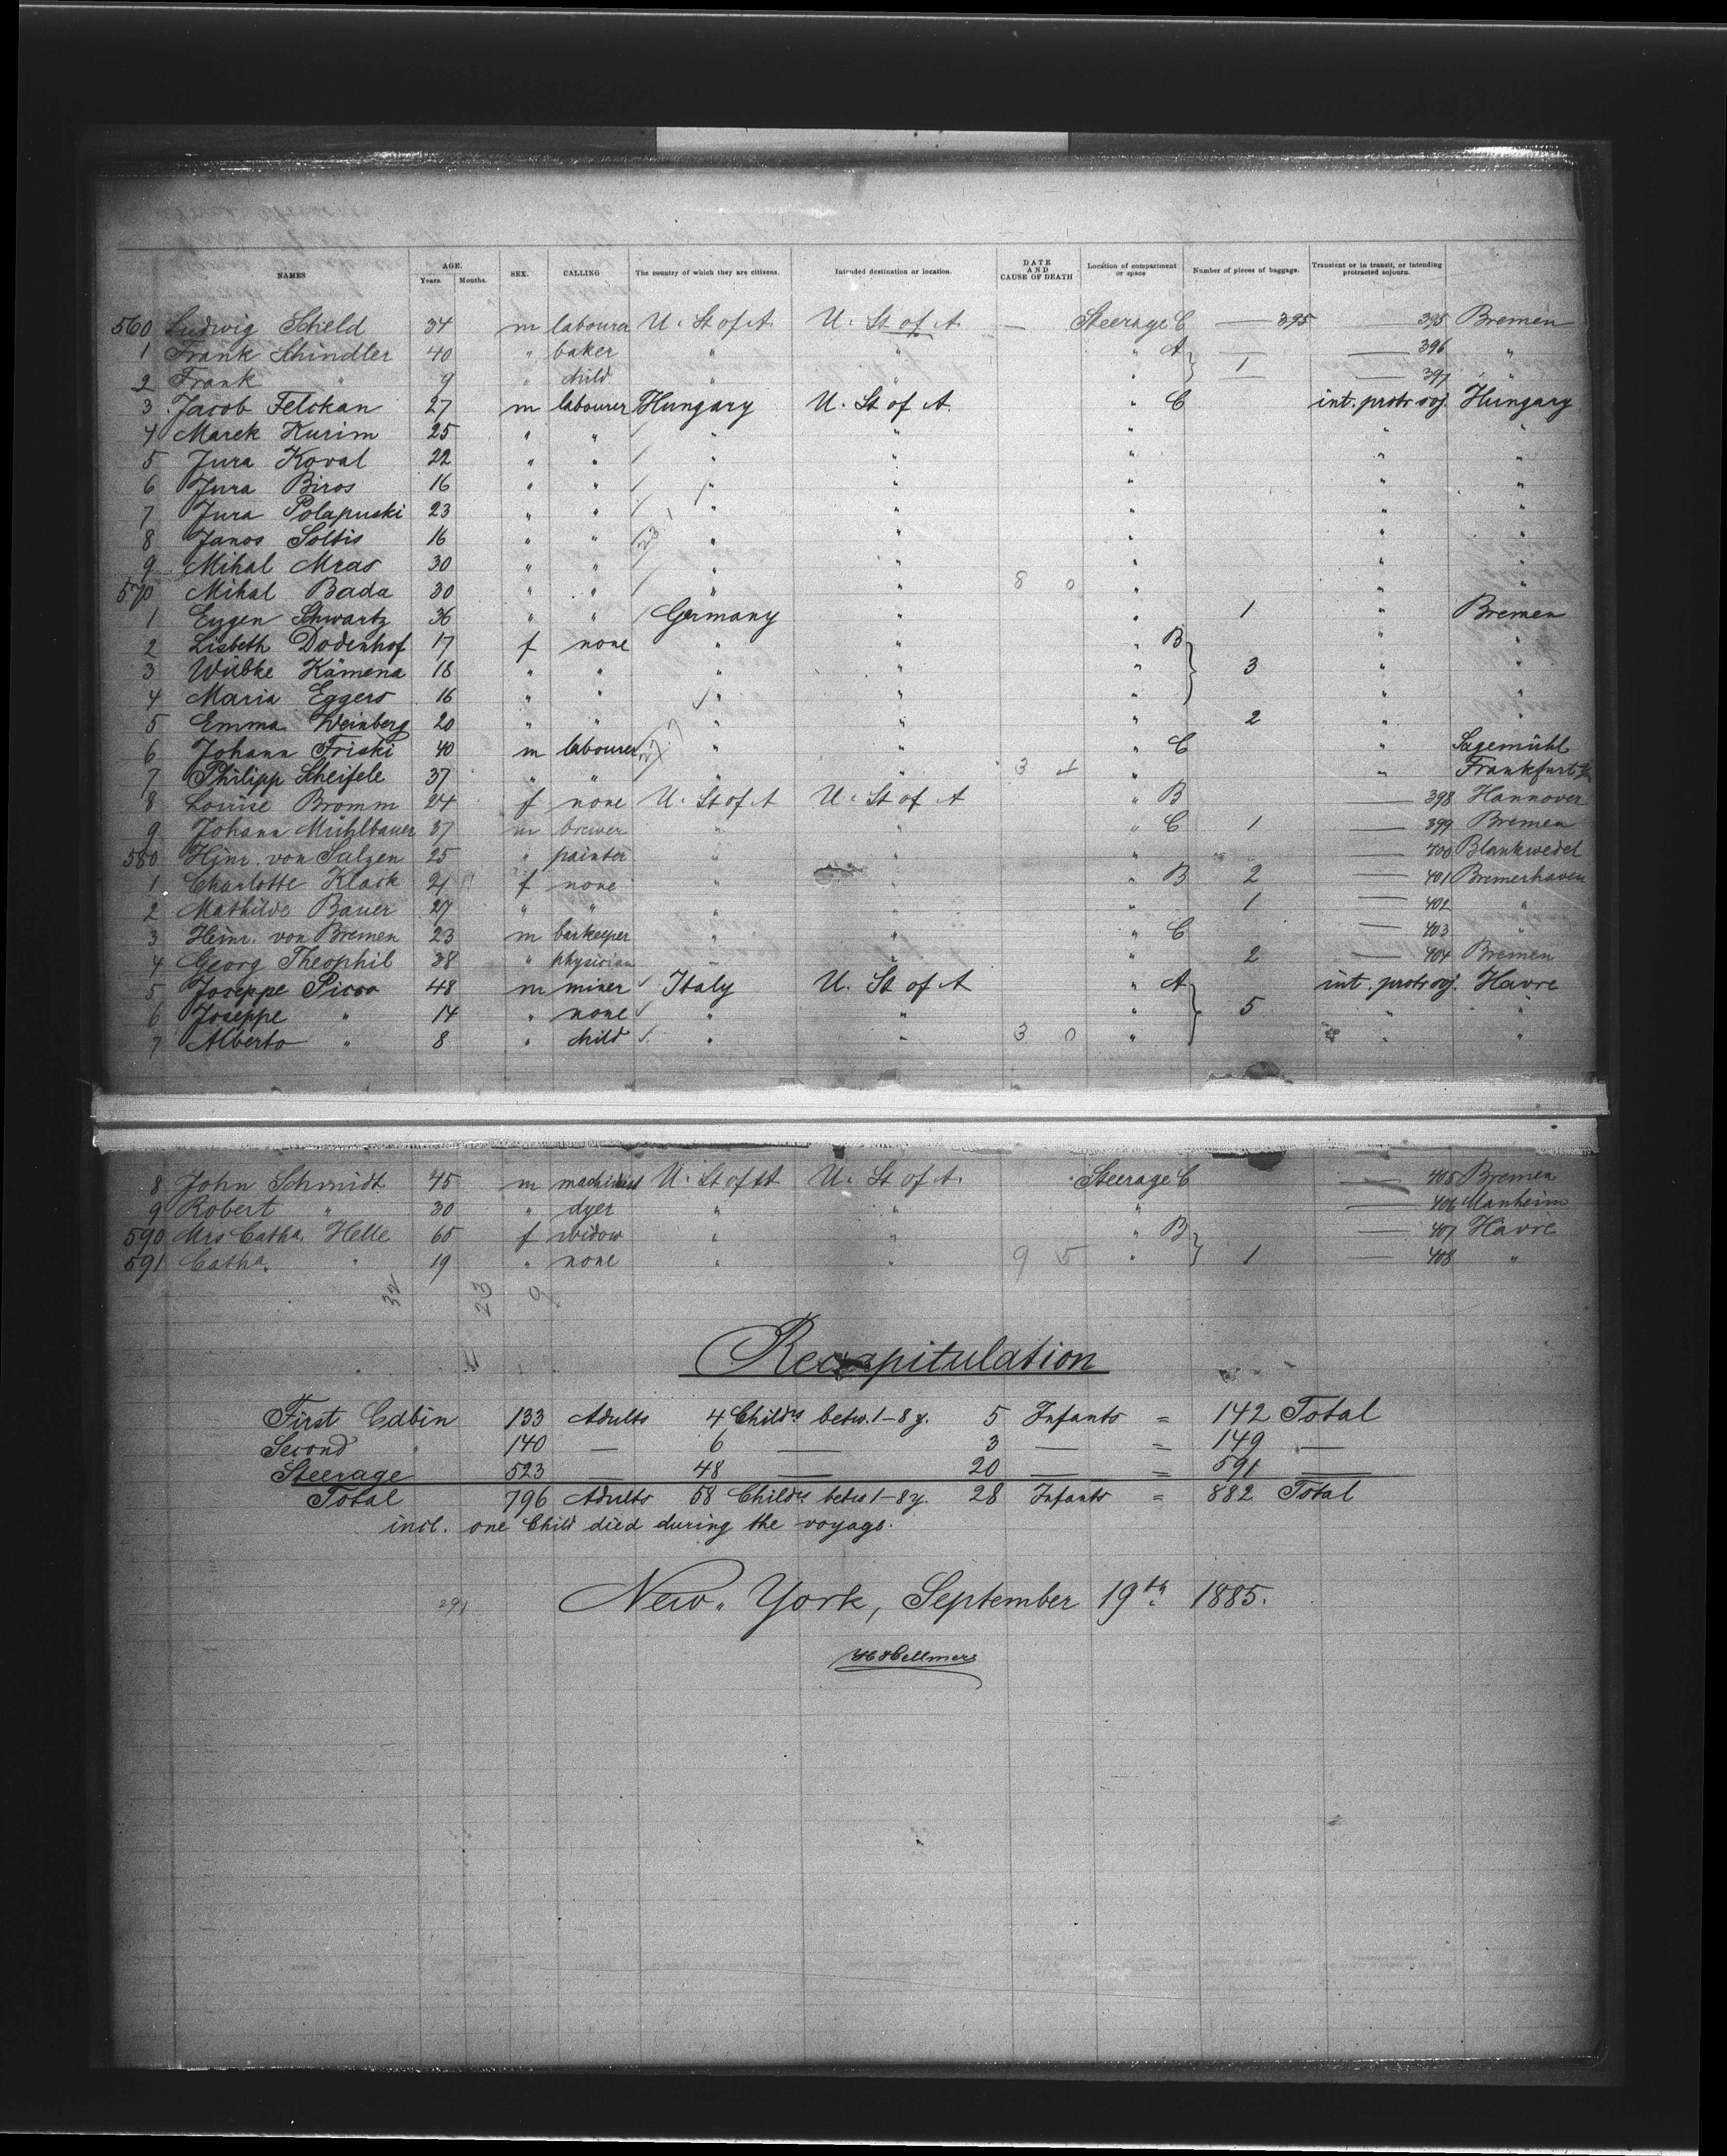 NAMES AGE. Years. Months. SEX. CALLING The country of which they are citizens. Intended destination or location. DATE AND CAUSE OF DEATH Location of compartment or space Number of pieces of baggage. Transient or in transit, or intending protracted sojourn.
560 Ludwig Scheld 34 m labourer U. St of A. U. St of A. — Steerage C — 395 — 395 Bremen
1 Frank Schindler 40 " baker " " " A } — — 396 "
2 Frank " 9 " child " " " 1 — 397
3 Jacob Felckan 27 m labourer Hungary U. St of A. " C int. protr soj. Hungary
4 Marek Kurim 25 " " " " " " "
5 Jura Koval 22 " " " " " " "
6 Jura Biros 16 " " " " " " "
7 Jura Polapuski 23 " " " " " " "
8 Janos Soltis 16 " " " " " " "
9 Mihal Mras 30 " " " " " " "
570 Mihal Bada 30 " " " " 8 0 " " "
1 Eugen Schwartz 36 " " Germany " " 1 " Bremen
2 Lisbeth Dodenhof 17 f none " " " B } " "
3 Wübke Kämena 18 " " " " " 3 " "
4 Maria Eggers 16 " " " " " " "
5 Emma Weinberg 20 " " " " " 2 " "
6 Johann Friski 40 m labourer " " " C " Sagemühl
7 Philipp Scheifele 37 " " " " 3 4 " " Frankfurt
8 Louise Bromm 24 f none U. St of A U. St of A " B — 398 Hannover
9 Johann Mühlbauer 37 m brewer " " " C 1 — 399 Bremen
580 Hinr. von Salzen 25 " painter " " " — 400 Blankwedel
1 Charlotte Klack 21 f none " " " B 2 — 401 Bremerhaven
2 Mathilde Bauer 27 " " " " " 1 — 402 "
3 Heinr. von Bremen 23 m barkeeper " " " C — 403 "
4 Georg Theophil 38 " physician " " " 2 — 404 Bremen
5 Joseppe Picco 48 m miner Italy U. St of A " A } int. protr soj. Havre
6 Joseppe " 14 " none " " " 5 " "
7 Alberto " 8 " child " " 3 0 " " "
8 John Schmidt 45 m machinist U. St of A U. St of A. Steerage C — 405 Bremen
9 Robert " 30 " dyer " " " — 406 Manheim
590 Mrs Catha. Helle 65 f widow " " " B } — 407 Havre
591 Catha. " 19 " none " " 9 5 " 1 — 408 "
32 23 9
Recapitulation
First Cabin 133 Adults 4 Childrs betw. 1-8 y. 5 Infants = 142 Total
Second " 140 — 6 — 3 — = 149 —
Steerage 523 — 48 — 20 — = 591 —
Total 796 Adults 58 Childrs betw 1-8 y. 28 Infants = 882 Total
incl. one Child died during the voyage.
New-York, September 19th 1885.
291
H Hellmers